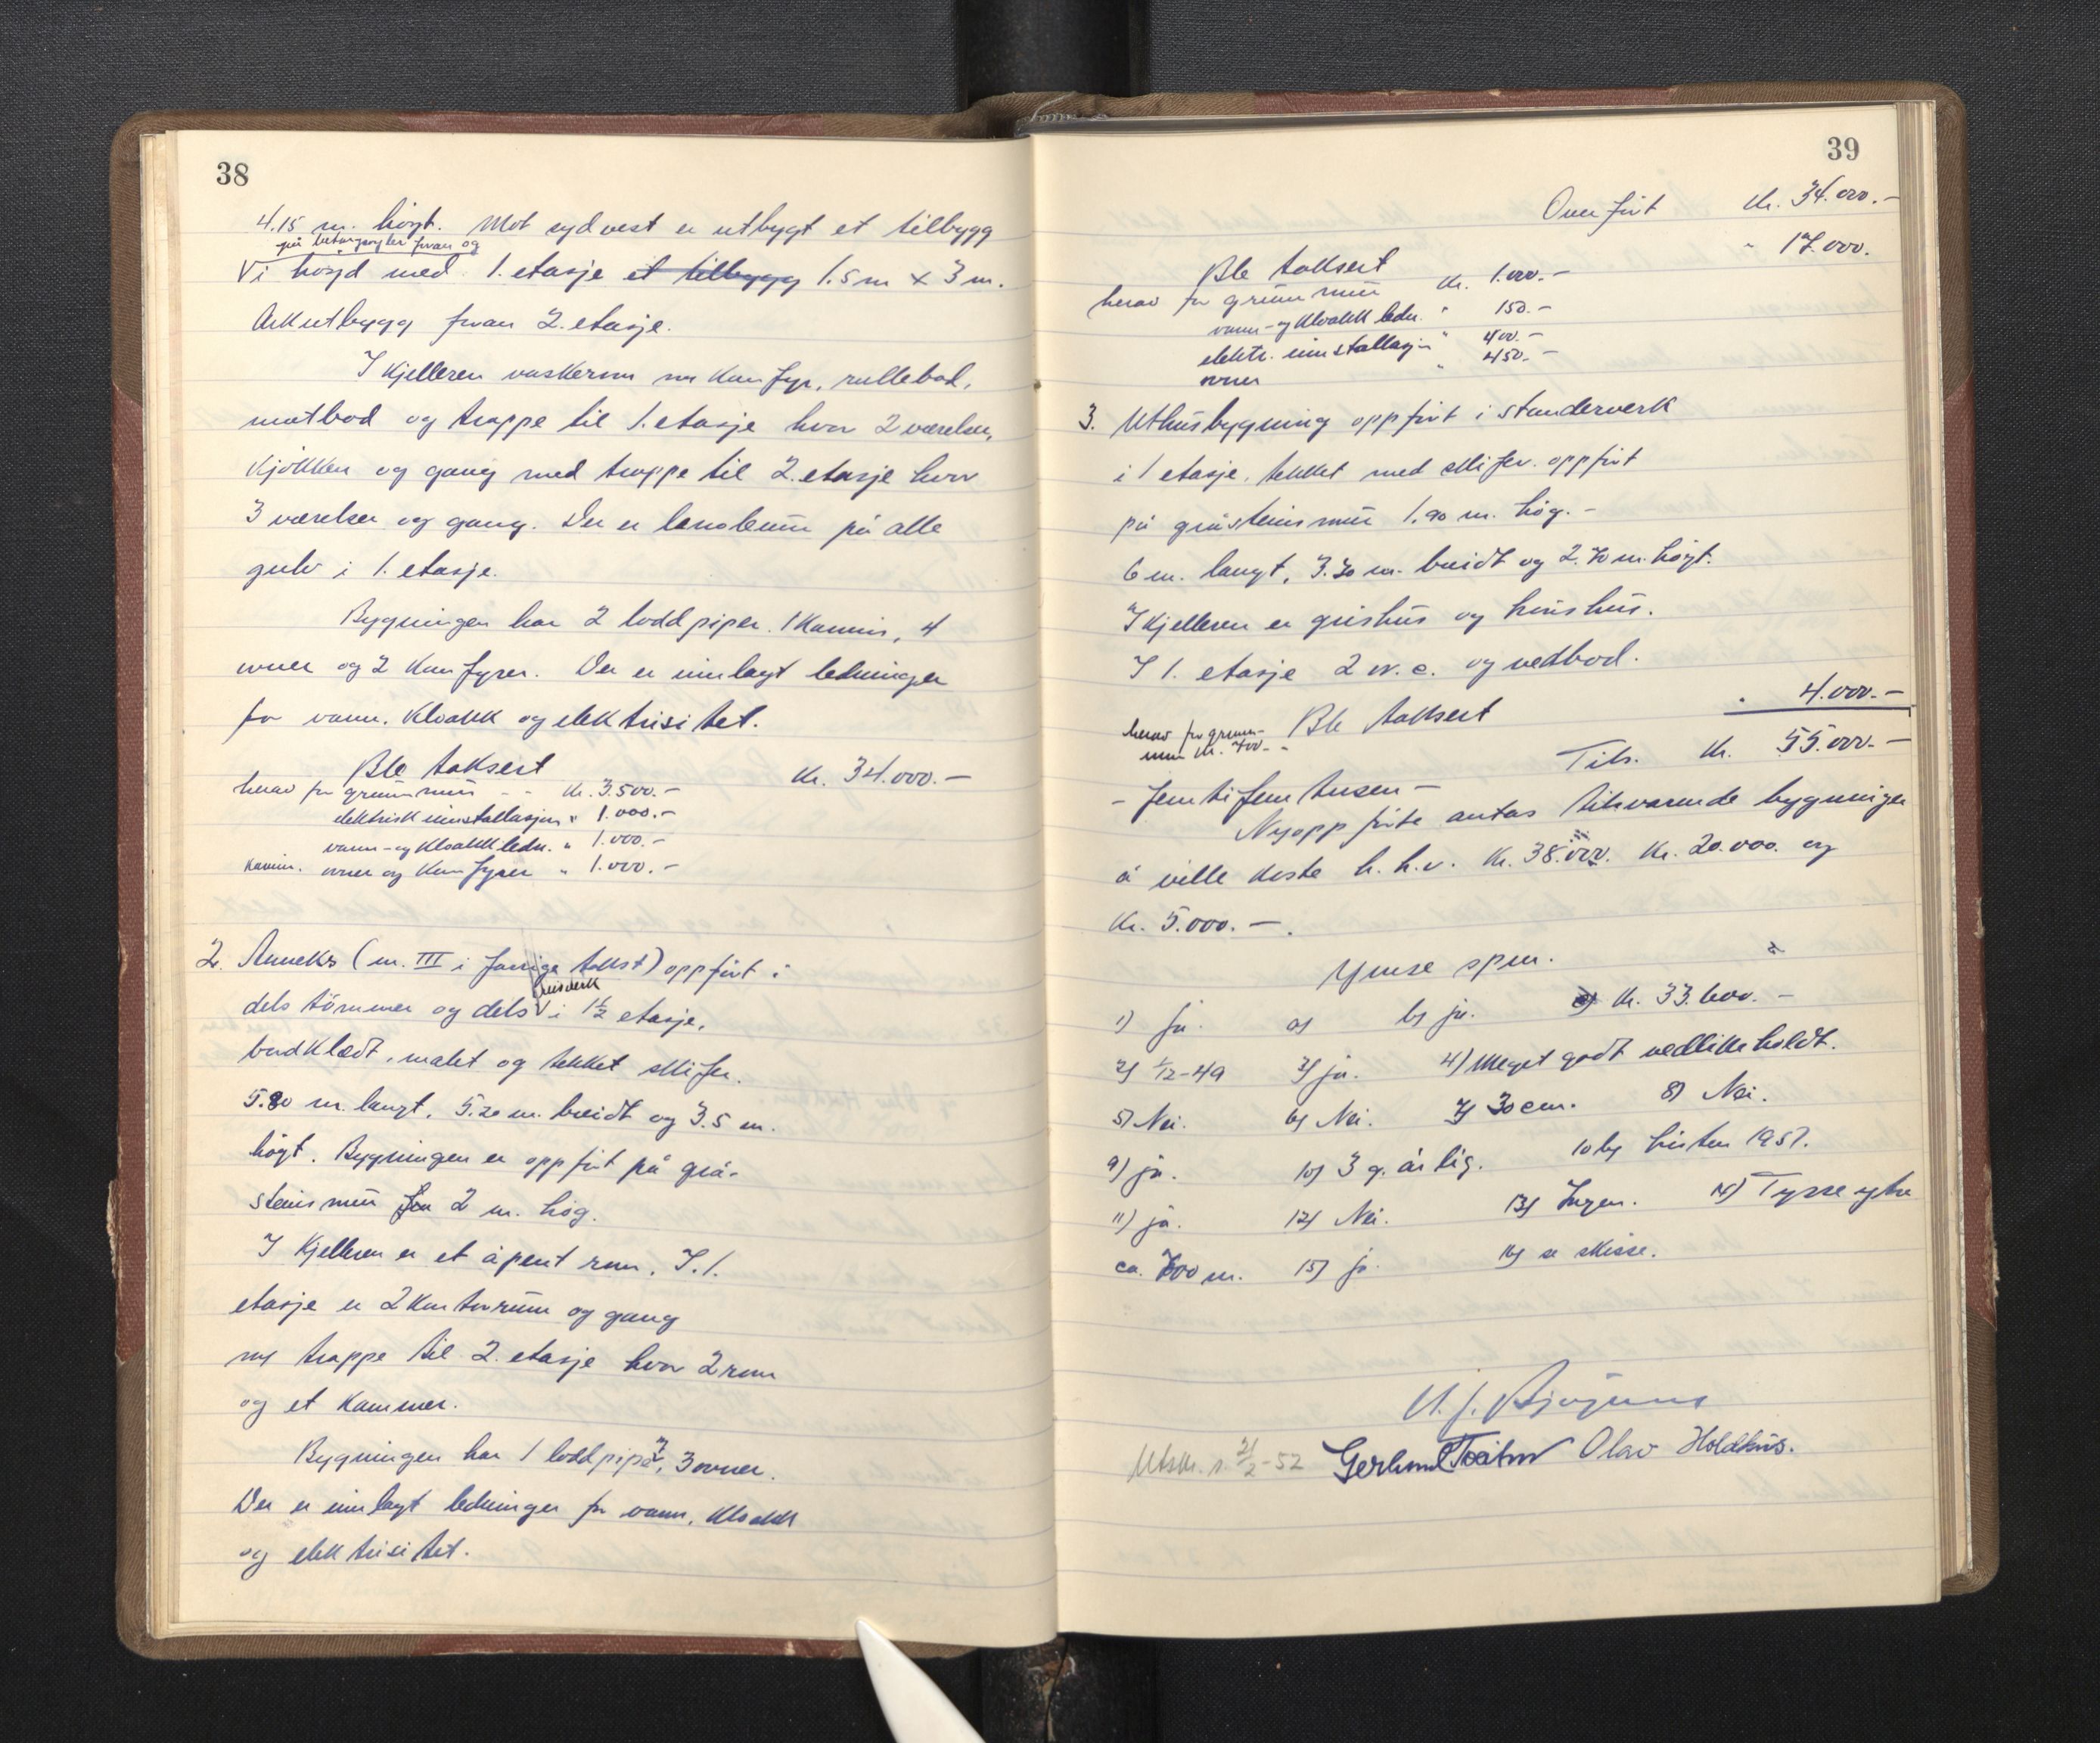 38
4.15 m. høgt. Mot sydvest er utbygt et tilbygg
på betongsøyler foran og
i høyd med 1. etasje et tilbygg 1.5 m x 3 m.
Arkutbygg foran 2. etasje.
I kjelleren vaskerom m komfyr, rullebod,
matbod og trappe til 1. etasje hvor 2 værelser,
kjøkken og gang med trappe til 2. etasje hvor
3 værelser og gang. Der er lenoleum på alle
gulv i 1. etasje.
Bygningen har 2 loddpiper. 1 kamin, 4
ovner og 2 komfyrer. Der er innlagt ledninger
for vann, kloakk og elektrisitet.
Ble taksert kr. 34.000.-
herav for grunnmur - - kr. 3.500.-
elektrisk innstallasjon " 1.000.-
vann- og kloakkledn. " 1.000.-
kamin. ovner og komfyrer " 1.000.-
2. Anneks (m. III i forrige takst) oppført i
reisverk
dels tømmer og dels i 1½ etasje,
bordklædt, malet og tekket skifer.
5.80 m. langt, 5.20 m. breidt og 3.5 m.
høgt. Bygningen er oppført på grå-
steinsmur 2 m. høg.
I kjelleren er et åpent rom. I 1.
etasje er 2 kontorrum og gang
m/ trappe til 2. etasje hvor 2 rom
og et kammer.
Bygningen har 1 loddpipe, 3 ovner.
Der er innlagt ledninger for vann, kloakk
og elektrisitet.
39
Overført kr. 34.000.-
" 17.000.
Ble taksert
herav for grunnmur kr. 1.000.-
vann- og kloakkledn. " 150.-
elektr. innstallasjon " 400.-
ovner " 450.-
3. Uthusbygning oppført i stenderverk
i 1 etasje, tekket med skifer. oppført
på gråsteinsmur 1.90 m. høg. -
6 m. langt, 3.70 m. breidt og 2.70 m. høgt.
I kjelleren er grishus og hønshus.
I 1. etasje 2 w.c. og vedbod.
" 4.000.-
herav for grunn- Ble taksert
mur kr. 700.-
Tils. kr. 55.000.-
- femtifem tusen -
Nyoppførte antas tilsvarende bygninger
å ville koste h.h.v. kr. 38.000. kr. 20.000. og
kr. 5.000.-.
Ymse spm.
1) ja. a) b) ja. kr. 33.600.-
2) 1/12-49 3) ja. 4) Meget godt vedlikeholdt.
5) Nei. 6) Nei. 7) 30 cm. 8) Nei.
9) ja. 10) 3 g. årlig. 10 b) høsten 1951.
11) ja. 12) Nei. 13) Ingen. 14) Tysse ytre
ca. 700 m. 15) ja. 16) se skisse.
Utskr. s. 21/2-52 Olav Holdhus.